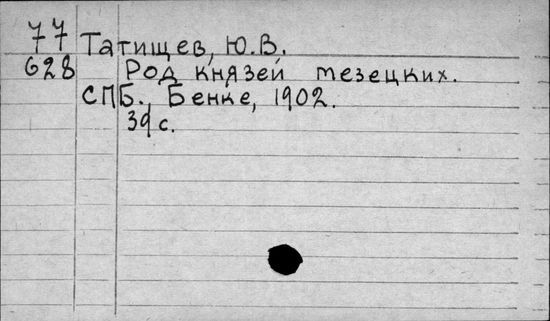 77 Татищев, Ю.В.
628 Род князей мезецких.
СПБ., Бенке, 1902.
39 с.